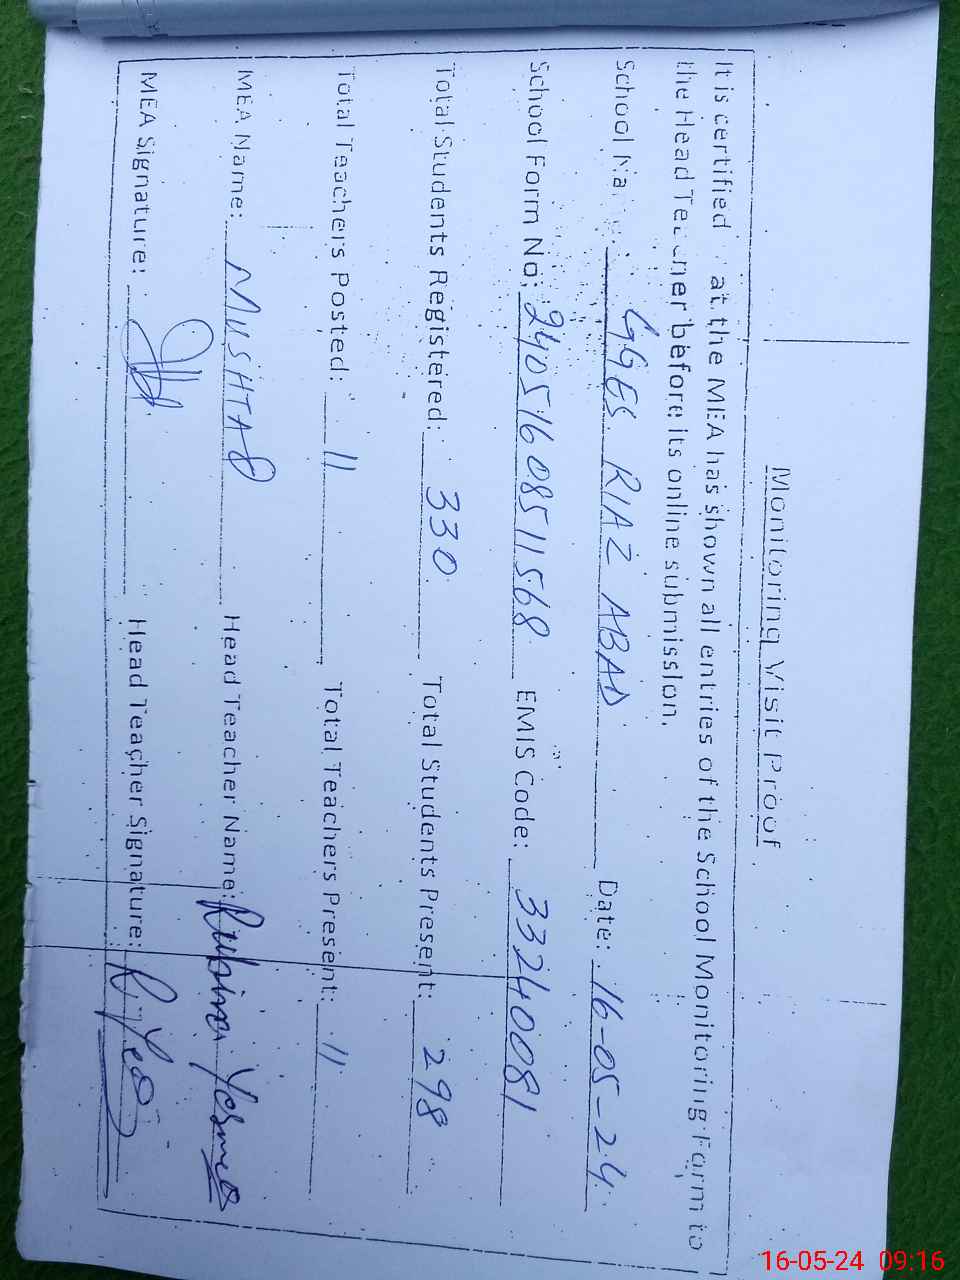 Monitoring Visit Proof
It is certified at the MEA has shown all entries of the School Monitoring Form to
the Head Teacher before its online submission.
School Na GGES RIAZ ABAD Date: 16-05-24
School Form No: 24051608511568 EMIS Code: 33240081
Total Students Registered: 330 Total Students Present: 298
Total Teachers Posted: 11 Total Teachers Present: 11
MEA Name: MUSHTAQ Head Teacher Name: Rubina
MEA Signature: Head Teacher Signature:
16-05-24 09:16